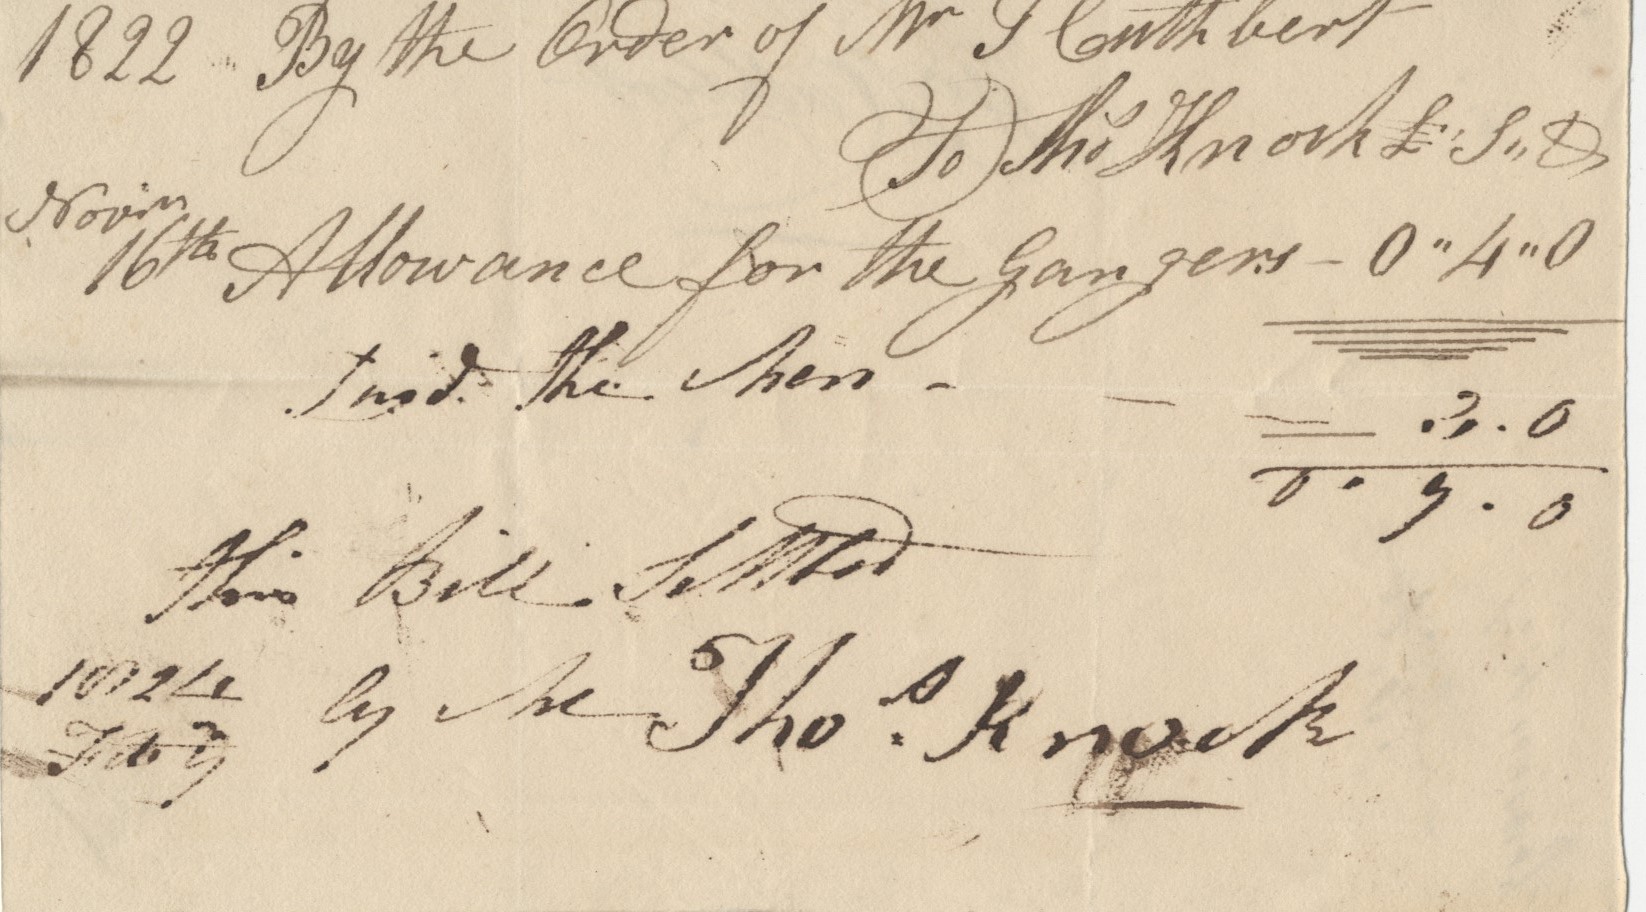 1822 By the Order of Mr J Cuthbert
To Thos Knock £ " S " D
Novm
16th Allowance for the Gangers - 0 " 4 " 0
the Men - 3 . 0
0 . 7 . 0
this Bill Settled
1824 by Me Thos. Knock
Feby